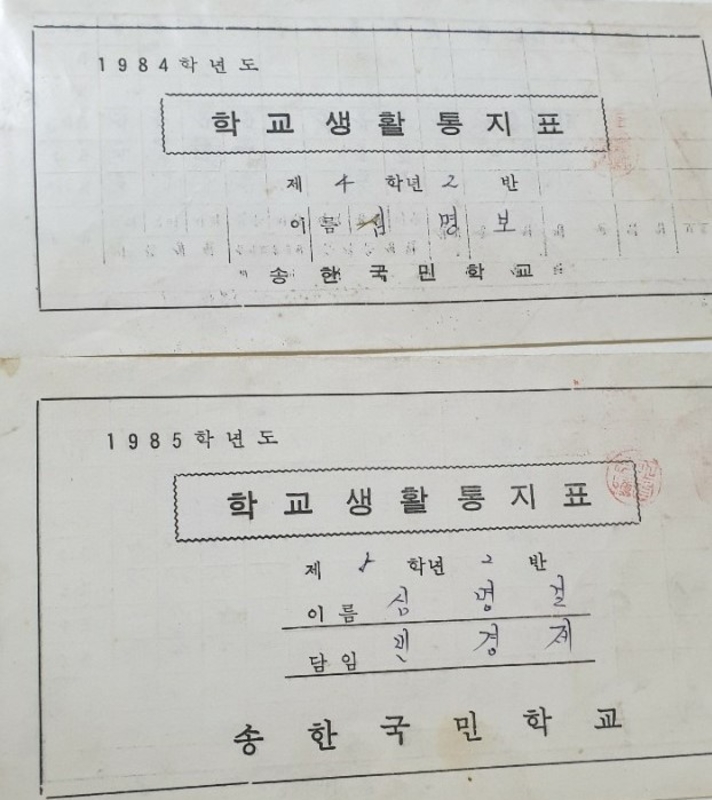 1984학년도
학교생활통지표
제 4 학년 2 반
이름 심명보
송한국민학교
1985학년도
학교생활통지표
제 학년 2 반
이름 심명걸
담임 경제
송한국민학교